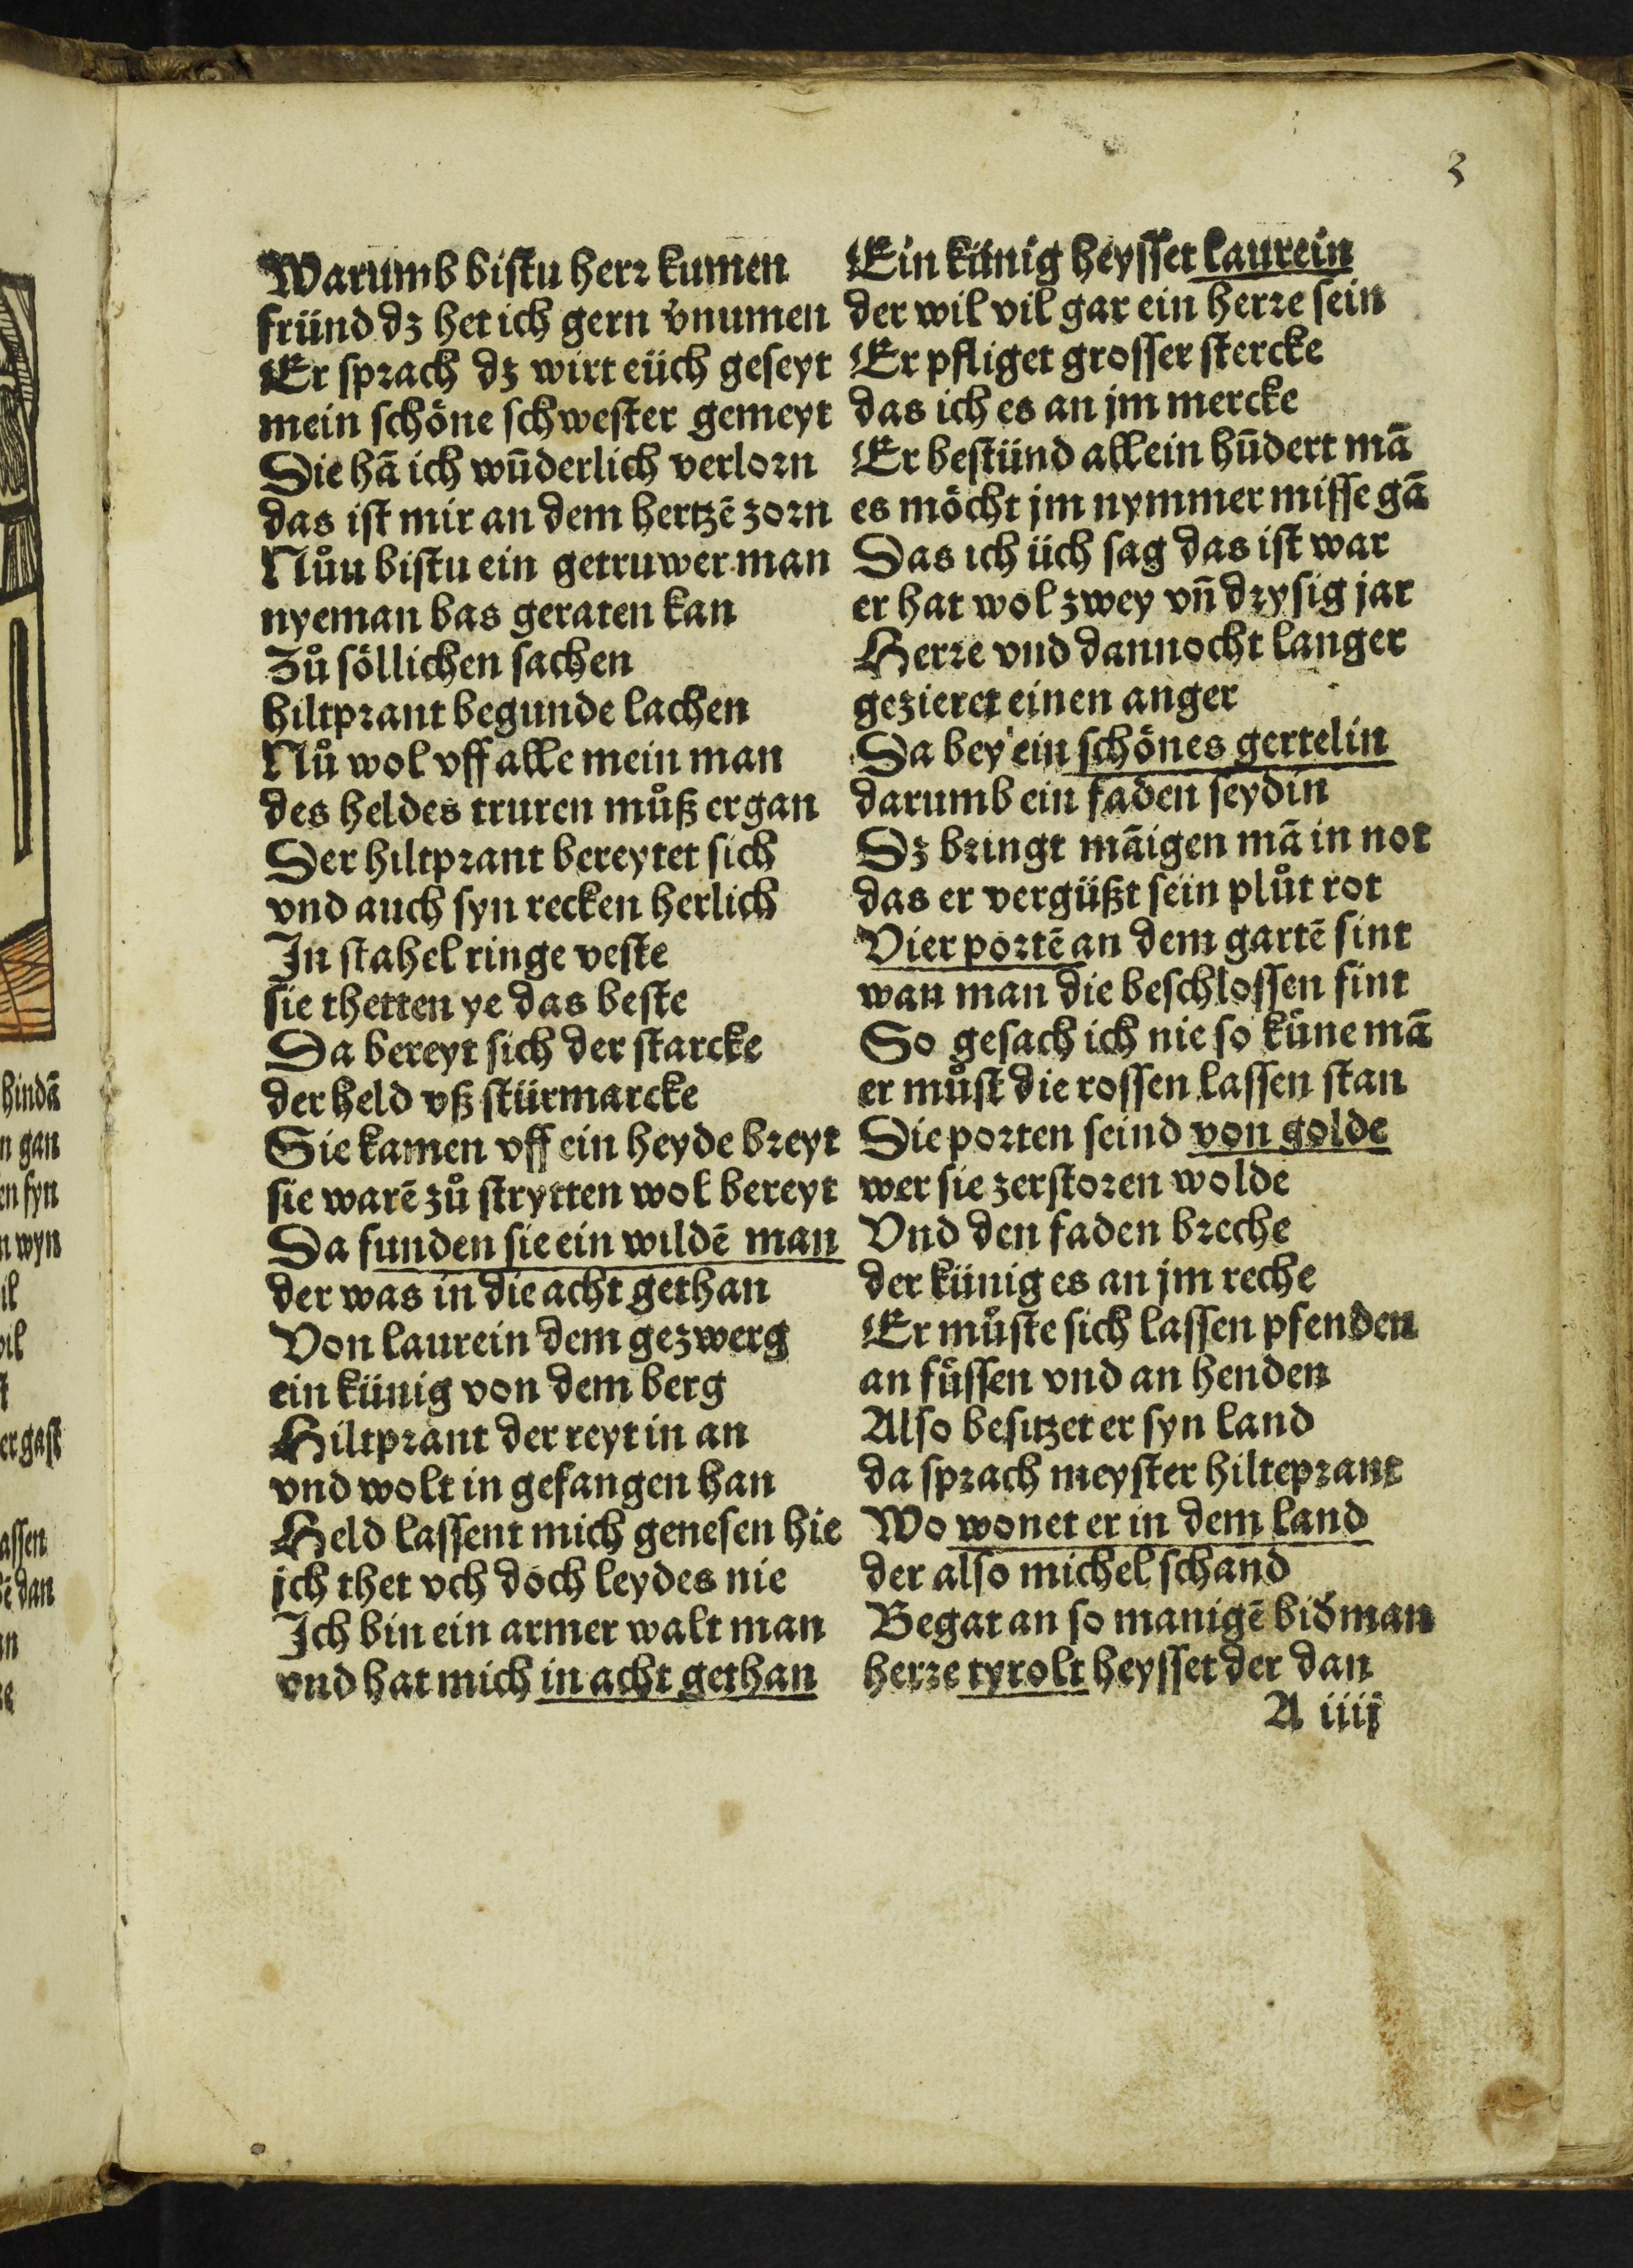 3
Warumb bistu herr kumen
fründ dz het ich gern v̉numen
Er sprach dz wirt eüch geseyt
mein schöne schwester gemeyt
Die hā ich wūderlich verlorn
das ist mir an dem hertzē zorn
Nůn bistu ein getruwer man
nyeman bas geraten kan
Zů söllichen sachen
hiltprant begunde lachen
Nů wol vff alle mein man
des heldes truren můß ergan
Der hiltprant bereytet sich
vnd auch syn recken herlich
In stahel ringe veste
sie thetten ye das beste
Da bereyt sich der starcke
der held vß stürmarcke
Sie kamen vff ein heyde breyt
sie warē zů strytten wol bereyt
Da funden sie ein wildē man
der was in die acht gethan
Von laurein dem gezwerg
ein künig von dem berg
Hiltprant der reyt in an
vnd wolt in gefangen han
Held lassent mich genesen hie
ich thet vch doch leydes nie
Ich bin ein armer walt man
vnd hat mich in acht gethan
Ein künig heysset laurein
der wil vil gar ein herre sein
Er pfliget grosser stercke
das ich es an jm mercke
Er bestünd allein hūdert mā
es möcht jm nymmer misse gā
Das ich üch sag das ist war
er hat wol zwey vn̄ drysig jar
Herre vnd dannocht langer
gezieret einen anger
Da bey ein schönes gertelin
darumb ein faden seydin
Dz bringt māigen mā in not
das er vergüßt sein plůt rot
Vier portē an dem gartē sint
wan man die beschlossen fint
So gesach ich nie so kůne mā
er můst die rossen lassen stan
Die porten seind von golde
wer sie zerstoren wolde
Vnd den faden breche
der künig es an jm reche
Er můste sich lassen pfenden
an fůssen vnd an henden
Also besitzet er syn land
da sprach meyster hilteprant
Wo wonet er in dem land
der also michel schand
Begat an so manigē bid̉man
herre tyrolt heysset der dan
A iiij